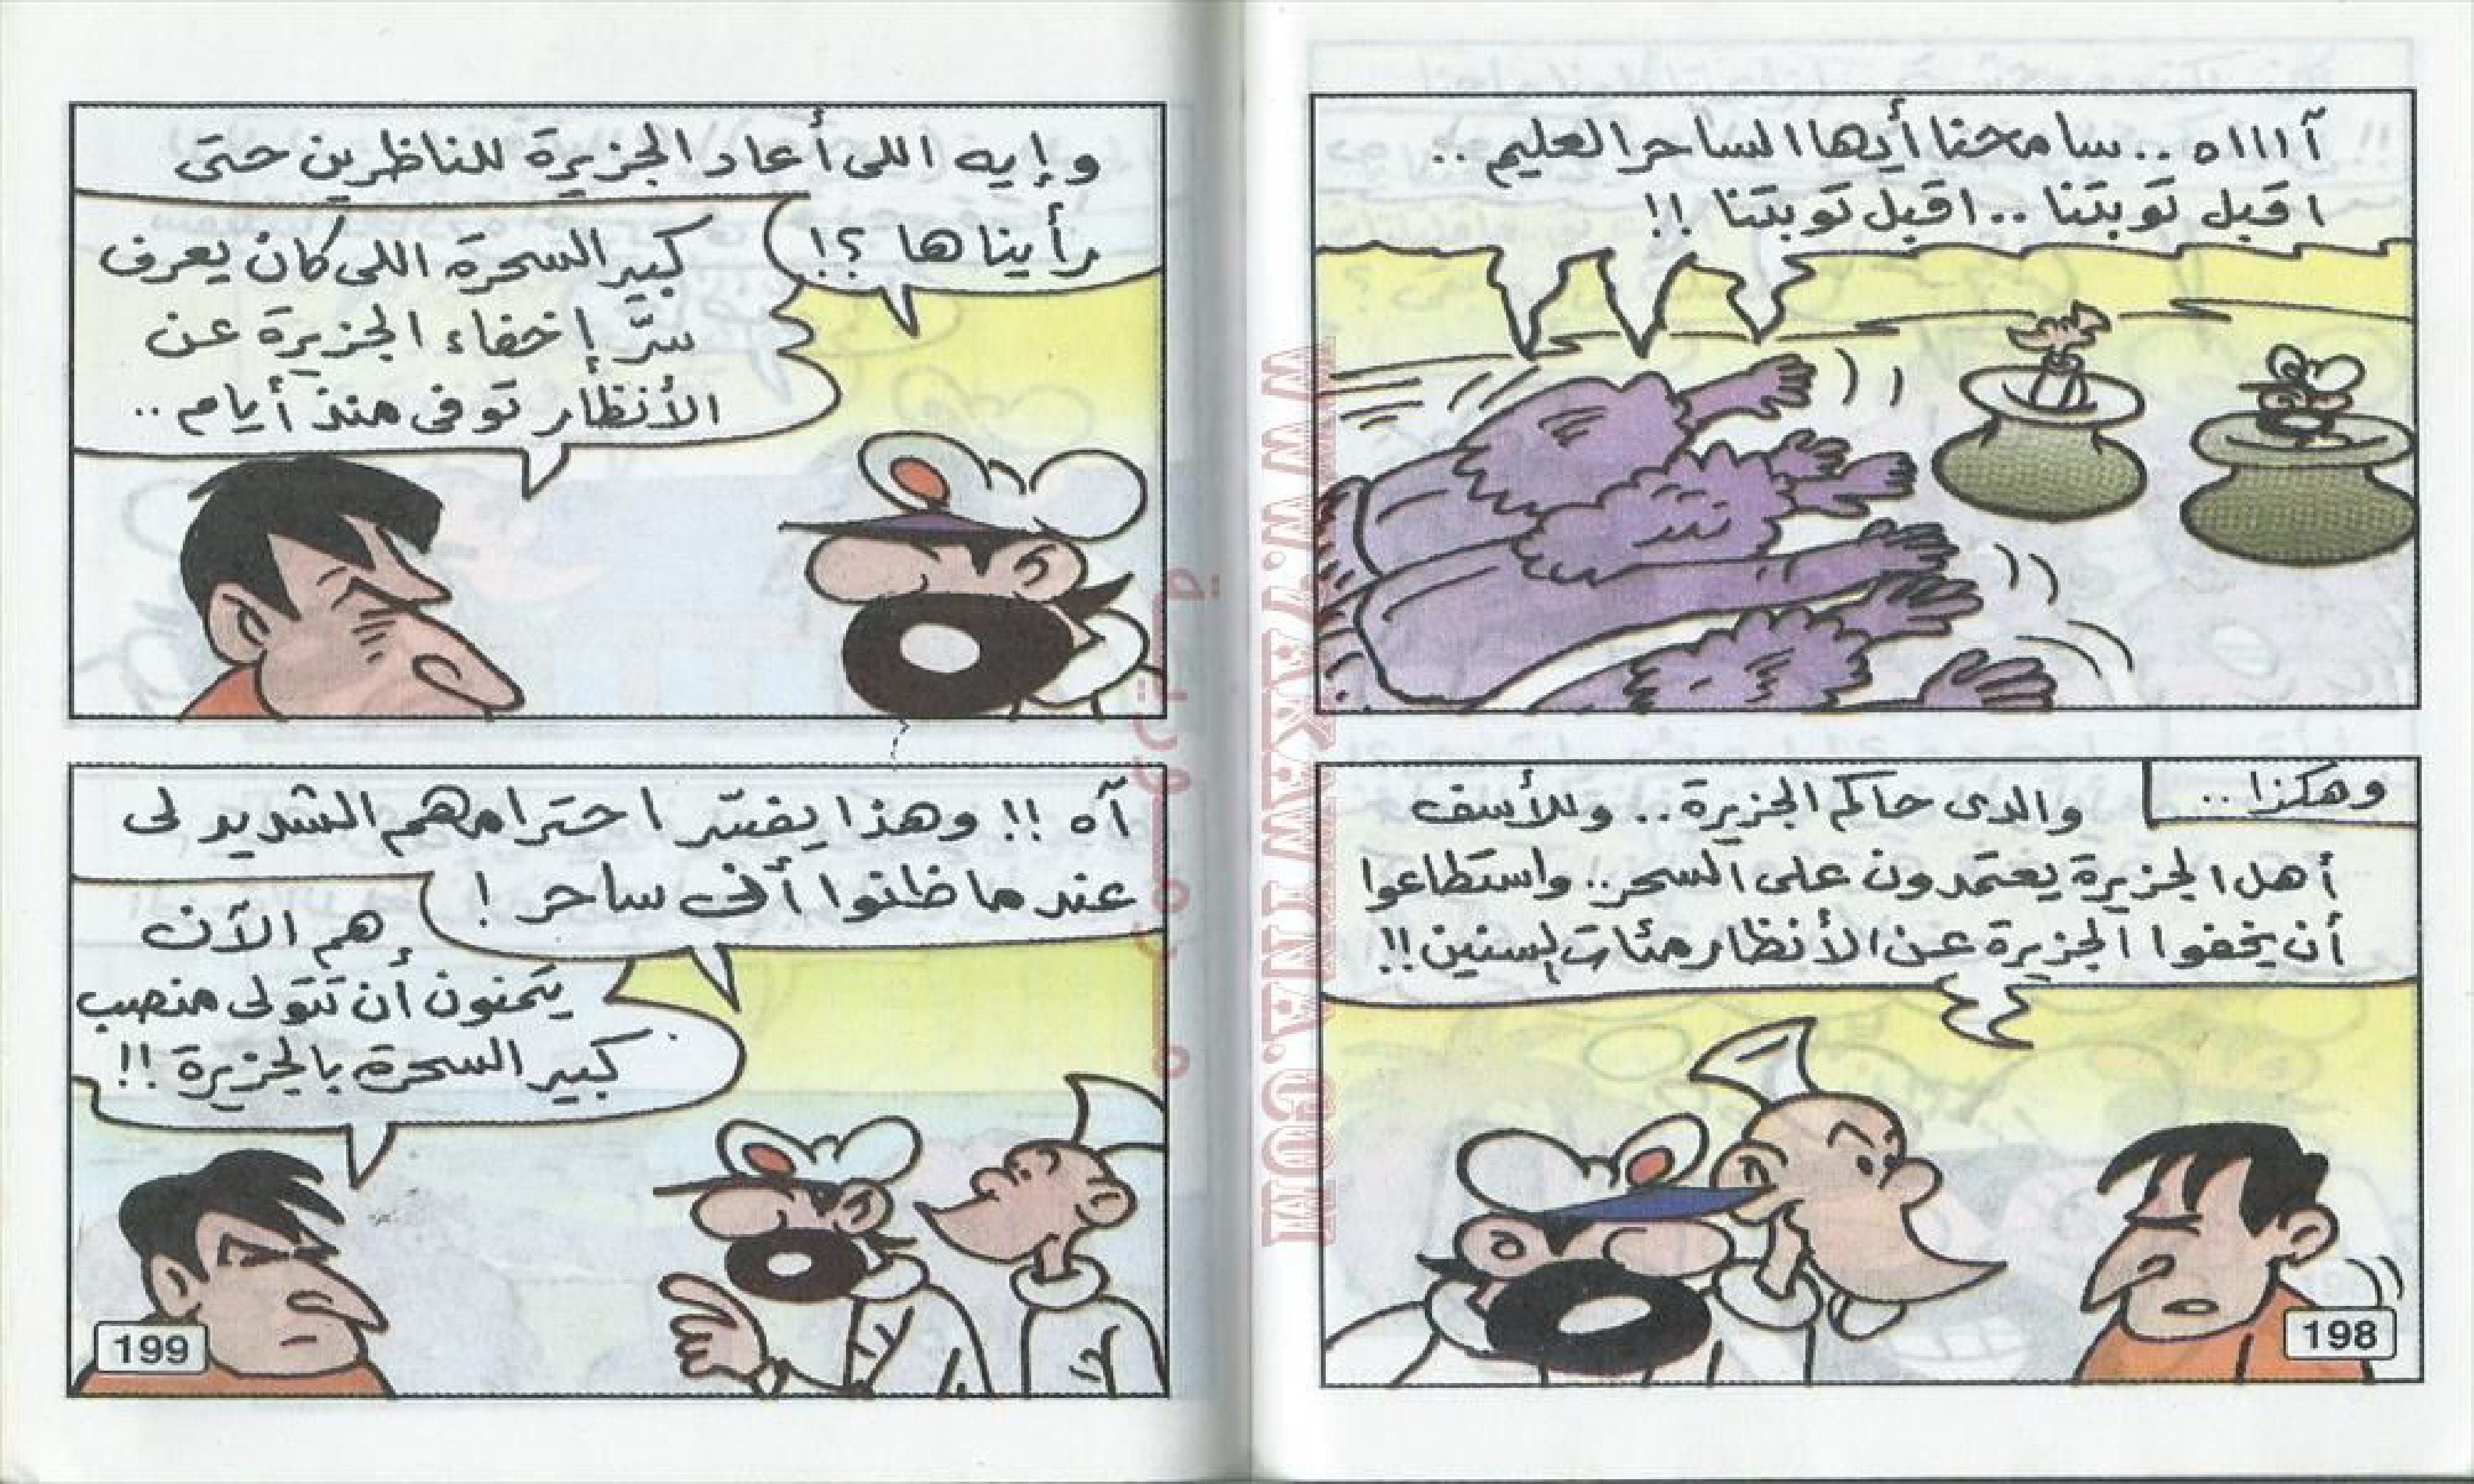 آاااه .. سامحنا أيها الساحر العليم ..
اقبل توبتنا .. اقبل توبتنا !!
وهكذا ..
والدى حاكم الجزيرة .. وللأسف
أهل الجزيرة يعتمدون على السحر .. واستطاعوا
أن يخفوا الجزيرة عن الأنظار مئات السنين !!
198
وإيه اللى أعاد الجزيرة للناظرين حتى
رأيناها ؟!
كبير السحرة اللى كان يعرف
سرّ إخفاء الجزيرة عن
الأنظار توفى منذ أيام ..
آه !! وهذا يفسّر احترامهم الشديد لى
عندما ظنوا أنى ساحر !
إهم الآن
يتمنون أن تتولى منصب
كبير السحرة بالجزيرة !!
199
WWW.ARABNIWAKRAFA.COM